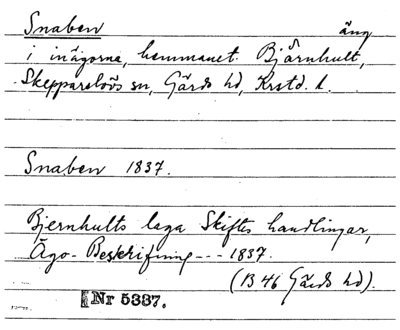 Snaben äng
i inägorna, hemmanet Bjärnhult,
Skepparslövs sn, Gärds hd, Krstd. l.
Snaben 1837.
Bjernhults laga Skiftes handlingar,
Ägo-Beskrifning --- 1837.
(B 46 Gärds hd).
Nr 5337.